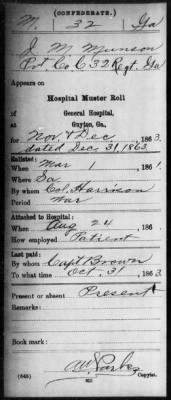 (CONFEDERATE.)
M. 32 Ga
J M Munson
Pvt. Co. C 32 Regt. Ga
Appears on
Hospital Muster Roll
of
General Hospital,
at
Guyton, Ga.,
for Nov & Dec, 1863.
dated Dec. 31, 1863.
Enlisted:
When Mar 1, 186
Where Ga
By whom Col. Harrison
Period War
Attached to Hospital:
When Aug 24, 186
How employed Patient
Last paid:
By whom Capt Brown
To what time Oct. 31, 1863.
Present or absent Present
Remarks:
Book mark:
(645)
Copyist.